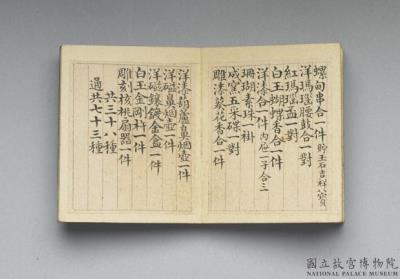 螺甸串合一件貯玉石吉祥八寶
洋瑪瑙腰鼓合一對
紅瑪瑙盂一對
白玉蝴蝶香合一件
洋漆合一件內屉一子合三
珊瑚素珠一掛
成窯五采碟一對
雕漆葵花香合一件
洋漆葫蘆鼻烟壺一件
洋磁鼻烟壺一件
洋磁鑲鍍金盒一件
白玉金剛杵一件
雕刻核桃扇器一件
共三十八種
通共七十三種
國立故宮博物院
NATIONAL PALACE MUSEUM